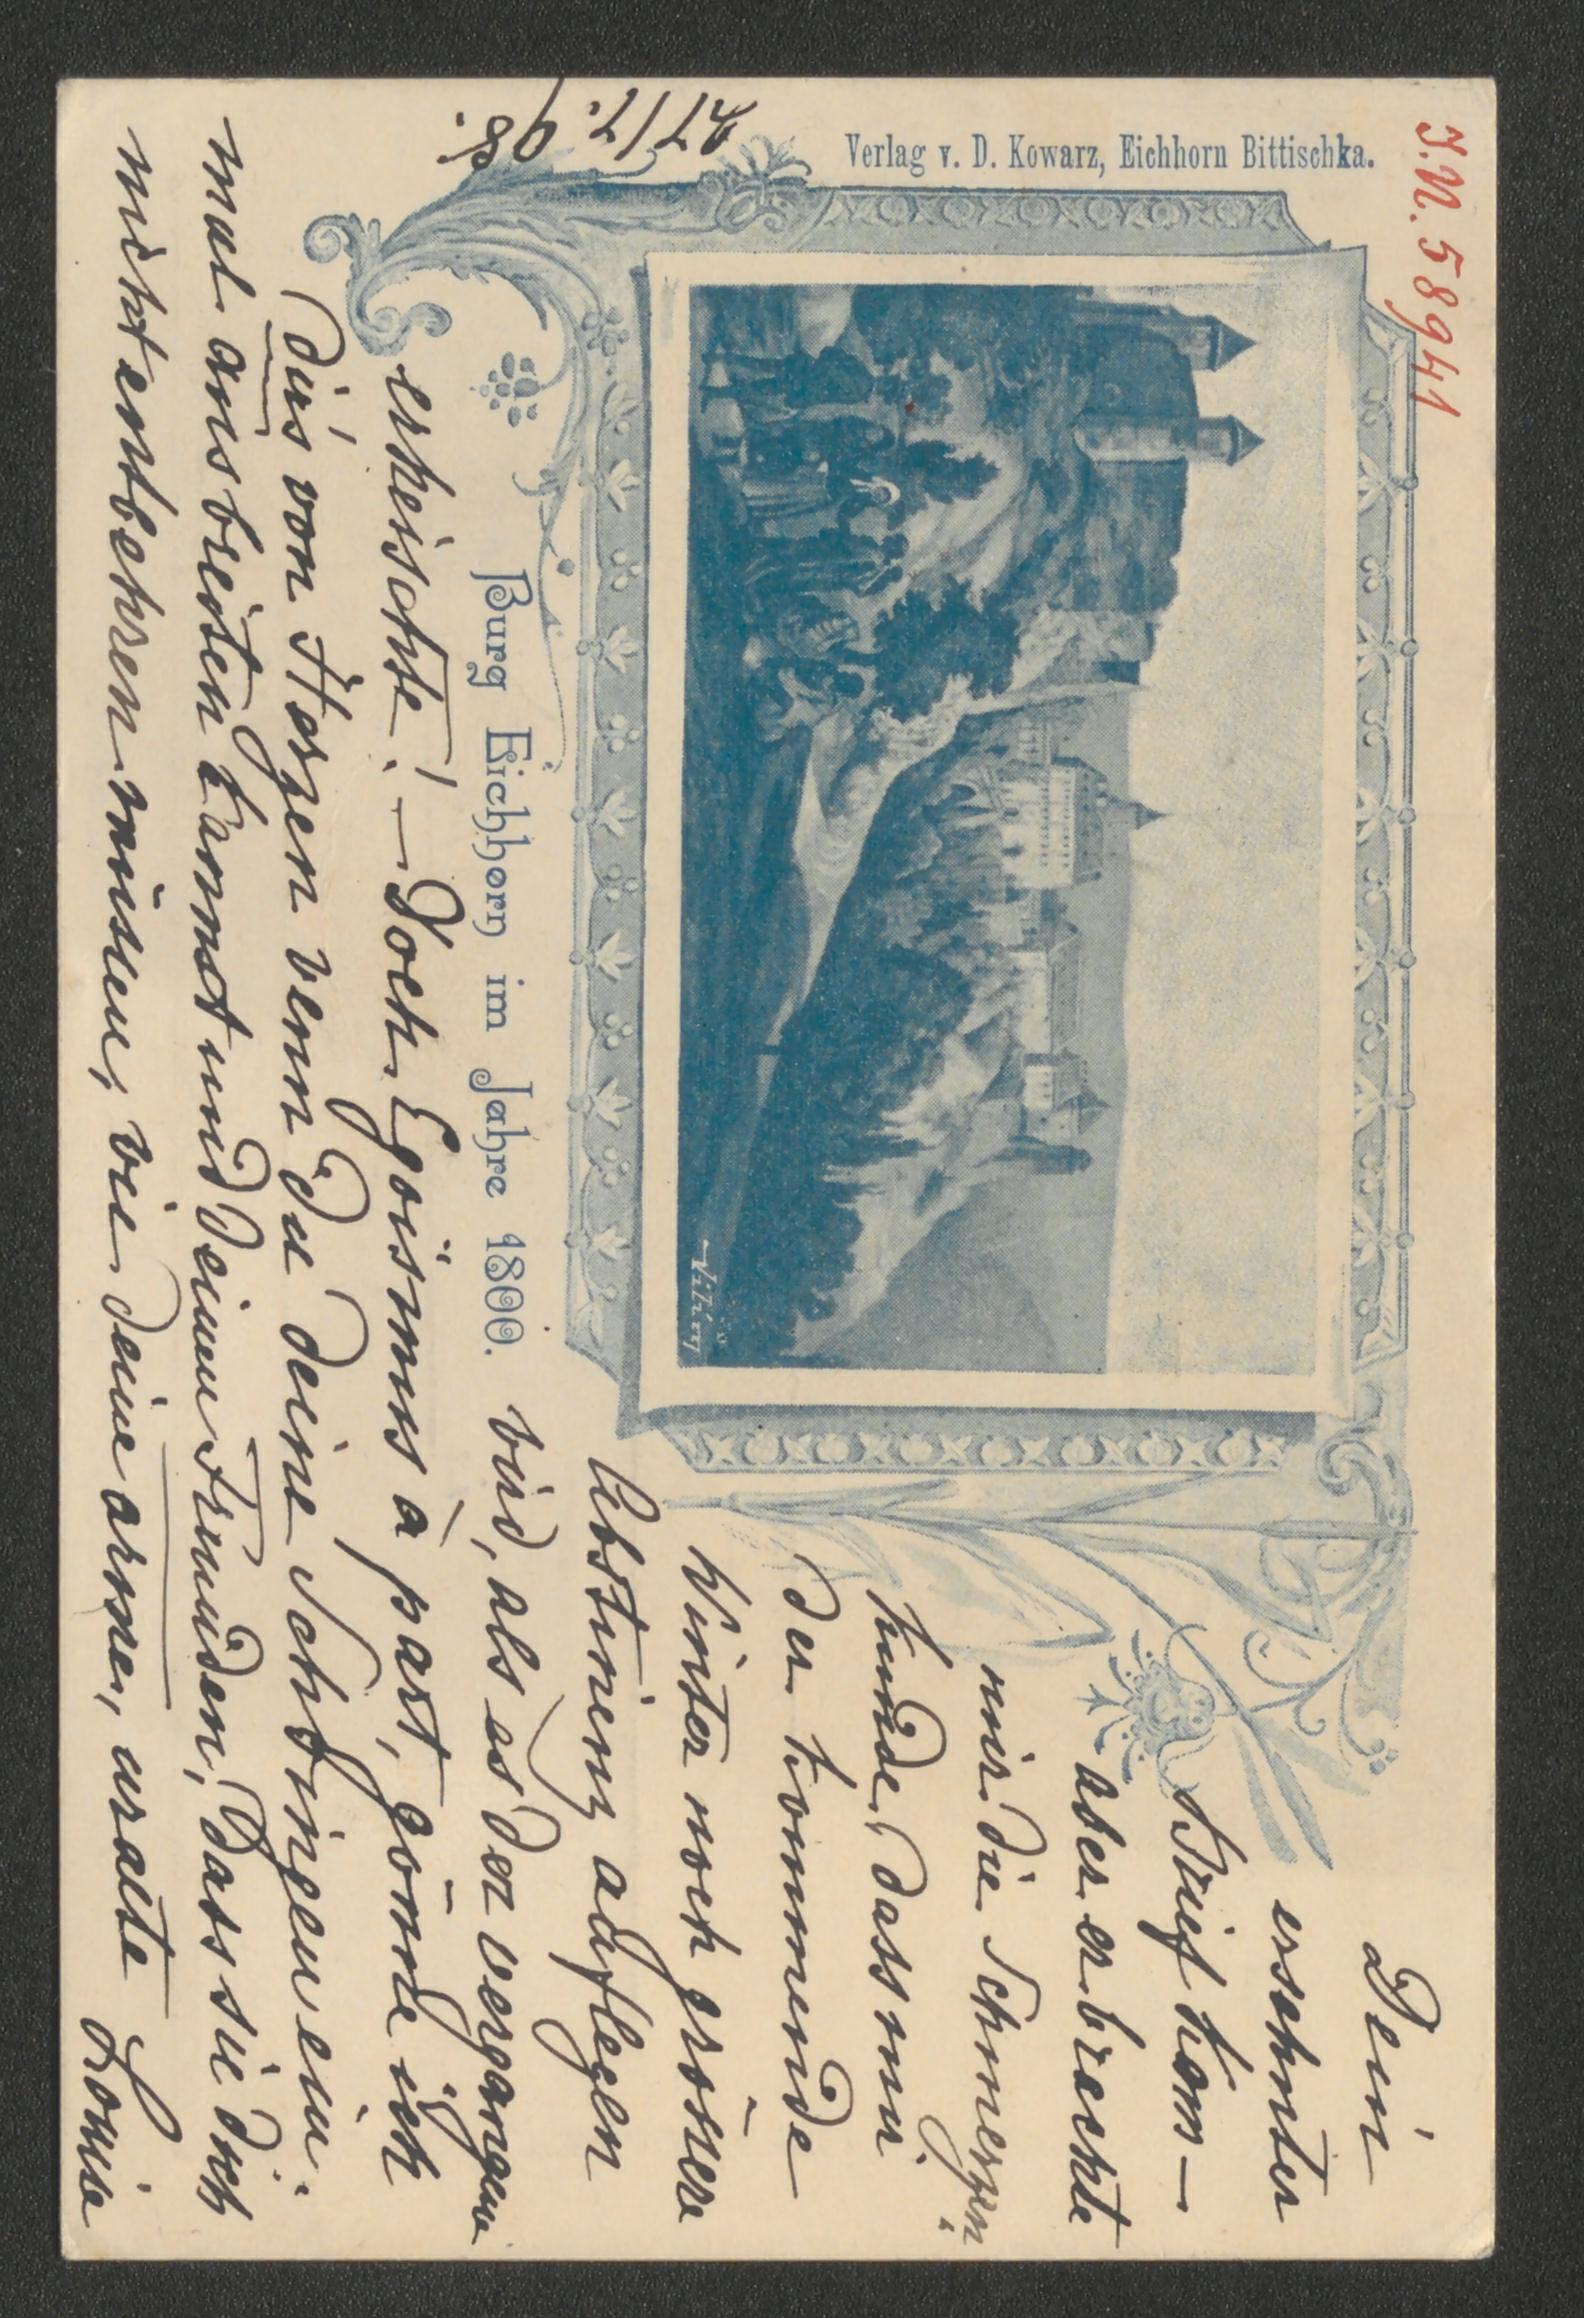 Verlag v. D. Kowarz, Eichhorn Bittischka.
J.N. 58941
27/7. 98.
Burg Eichhorn im Jahre 1800.
Dein
ersehnter
Brief kam –
aber er brachte
mir die Schmerzen
Kunde, dass mir
der kommende
Winter noch grössere
Abstinenz auflegen
wird, als es der vergangene
erheischte! – Doch Egoismus à part, gönne ich
dir's von Herzen wenn du deine Schwingen ein-
mal ausbreiten kannst und deinen Freunden, dass sie dich
nicht entbehren müssen, wie deine arme, uralte Louise